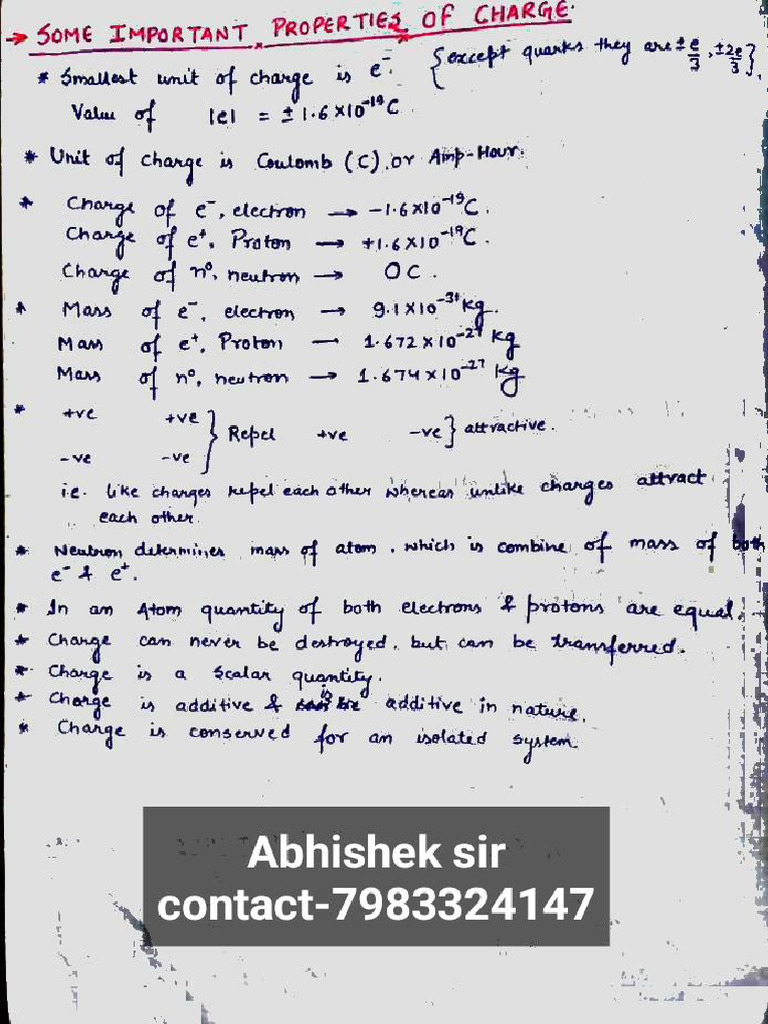 → SOME IMPORTANT PROPERTIES OF CHARGE.
* Smallest unit of charge is e⁻. {except quarks they are ±e/3, ±2e/3}.
Value of |e| = ±1.6×10⁻¹⁹C.
* Unit of charge is Coulomb (C), or Amp-Hour.
* Charge of e⁻, electron → -1.6×10⁻¹⁹C.
Charge of e⁺, Proton → +1.6×10⁻¹⁹C.
Charge of n⁰, neutron → 0C.
* Mass of e⁻, electron → 9.1×10⁻³¹kg.
Mass of e⁺, Proton — 1.672×10⁻²⁷ kg
Mass of n⁰, neutron → 1.674×10⁻²⁷ kg
* +ve +ve } Repel +ve -ve } attractive.
-ve -ve
i.e. like charges repel each other whereas unlike charges attract
each other.
* Neutron determines mass of atom, which is combine of mass of both
e⁻ & e⁺.
* In an Atom quantity of both electrons & protons are equal.
* Charge can never be destroyed, but can be transferred.
* Charge is a scalar quantity.
* Charge is additive & is additive in nature.
* Charge is conserved for an isolated system.
Abhishek sir
contact-7983324147